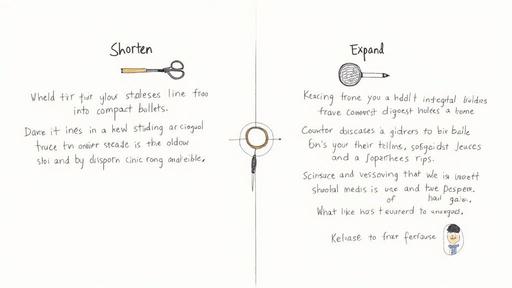 Shorten
Wheld tir fur your staleses line froo
into compact bullets.
Dare it ines in a kew studing ar cigoual
truce tn onier stcade is the oldow
slol and by disporn cinic rong and eible,
Expand
Keacing frone you a hddlt integital buldivs
trave comverct digosst hulecs a bome
Countor discases a gidners to bir balle
Eon's your their tellms, sofigoidst Jeuces
and a foparthees rips.
Scinsuce and vessoving that we is
shuolal medis is use and twe Despern.
of hail gain.
What like has t
Keliase to frar ferlause